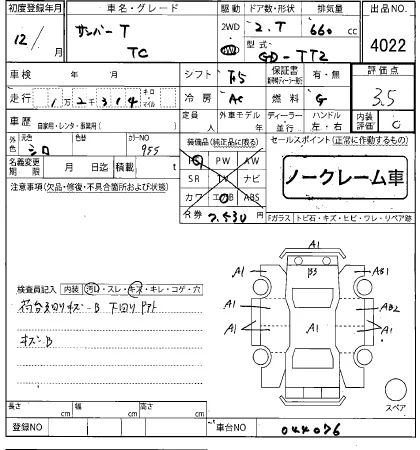 初度登録年月 車名・グレード 駆動 ドア数・形状 排気量 出品NO.
12/ 月 サンバー T 2WD 2.T 660 cc 4022
TC 型式 GD-TT2
車検 年 月 シフト F5 保証書 有・無 評価点
走行 1万2千314 キロ・マイル 冷房 AC 燃料 G 3.5
車歴 自家用・レンタ・事業用( ) 定員 人 外車モデル 年 ディーラー・並行 ハンドル 左・右 内装評価 C
外色 元色 シロ 色替 カラーNO 955 装備品(純正品に限る) セールスポイント(正常に作動するもの)
名義変更期限 月 日迄 積載 t PW AW
SR TV ナビ ノークレーム車
注意事項(欠品・修復・不具合箇所および状態) カワ エアB ABS
R券 Fガラス トビ石・キズ・ヒビ・ワレ・リペア跡
A1
A1 B3 AB1
検査員記入 内装 汚れ・スレ・キズ・キレ・コゲ・穴
A1 AB2
A1 A1 A1
キズB
A1
スペア
長さ cm 幅 cm 高さ cm
登録NO 車台NO 044076